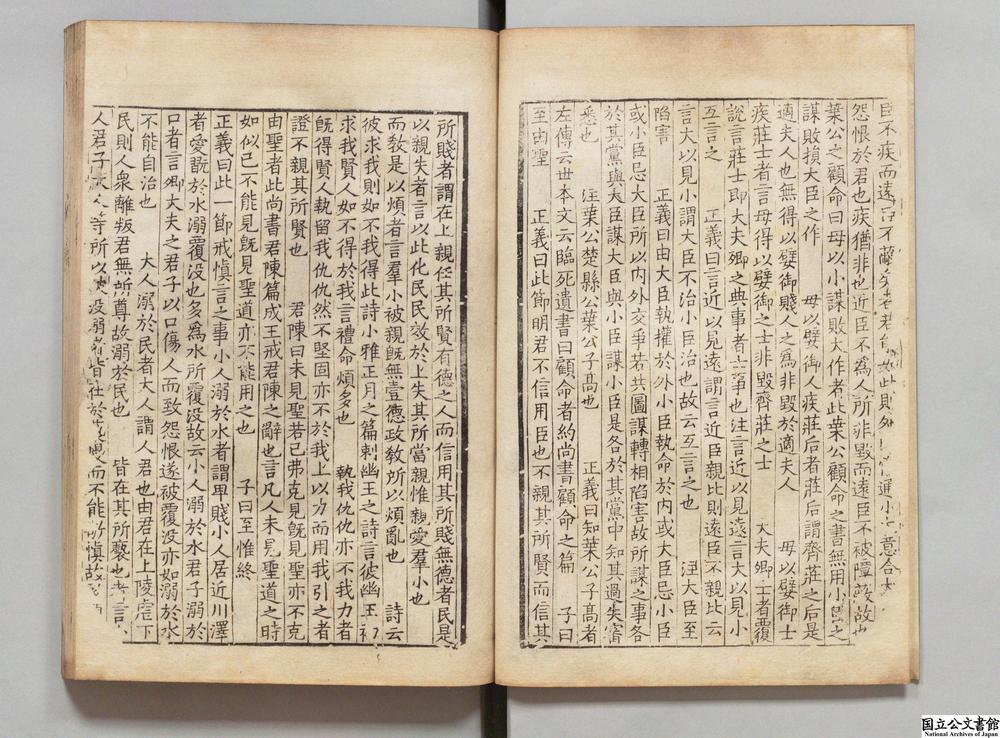 臣不疾而遠臣不蔽矣者若能如此則外 通小 意合大
怨恨於君也疾猶非也近臣不爲人所非毀而遠臣不被障蔽故也
葉公之顧命曰毋以小謀敗大作者此葉公顧命之書無用小臣之
謀敗損大臣之作 毋以嬖御人疾莊后者莊后謂齊莊之后是
適夫人也無得以嬖御賤人之爲非毀於適夫人 毋以嬖御士
疾莊士者言毋得以嬖御之士非毀齊莊之士 大夫卿士者覆
說言莊士即大夫卿之典事者士事也注言近以見遠言大以見小
互言之 正義曰言近以見遠謂言近臣親比則遠臣不親比云
言大以見小謂大臣不治小臣治也故云互言之也 注大臣至
陷害 正義曰由大臣執權於外小臣執命於内或大臣忌小臣
或小臣忌大臣所以内外交爭若共圖謀轉相陷害故所謀之事各
於其黨與大臣謀大臣與小臣謀小臣是各於其黨中知其過失審
悉也 注葉公楚縣公葉公子高也 正義曰知葉公子高者
左傳云世本文云臨死遺書曰顧命者約尚書顧命之篇 子曰
至由聖 正義曰此節明君不信用臣也不親其所賢而信其
所賤者謂在上親任其所賢有德之人而信用其所賤無德者民是
以親失者言以此化民民效於上失其所當親惟親愛羣小也
而教是以煩者言羣小被親旣無壹德政教所以煩亂也 詩云
彼求我則如不我得此詩小雅正月之篇刺幽王之詩言彼幽王初
求我賢人如不得於我言禮命煩多也 執我仇仇亦不我力者
旣得賢人執留我仇仇然不堅固亦不於我上以力而用我引之者
證不親其所賢也 君陳曰未見聖若己弗克見旣見聖亦不克
由聖者此尚書君陳篇成王戒君陳之辭也言凡人未見聖道之時
如似已不能見旣見聖道亦不能用之也 子曰至惟終
正義曰此一節戒慎言之事小人溺於水者謂卑賤小人居近川澤
者愛翫於水溺覆没也多爲水所覆没故云小人溺於水君子溺於
口者言卿大夫之君子以口傷人而致怨恨遂被覆没亦如溺於水
不能自治也 大人溺於民者大人謂人君也由君在上陵虐下
民則人衆離叛君無所尊故溺於民也 皆在其所褻也者言
人君子 人等所以 没溺者皆在於 而不能 慎故
国立公文書館
National Archives of Japan